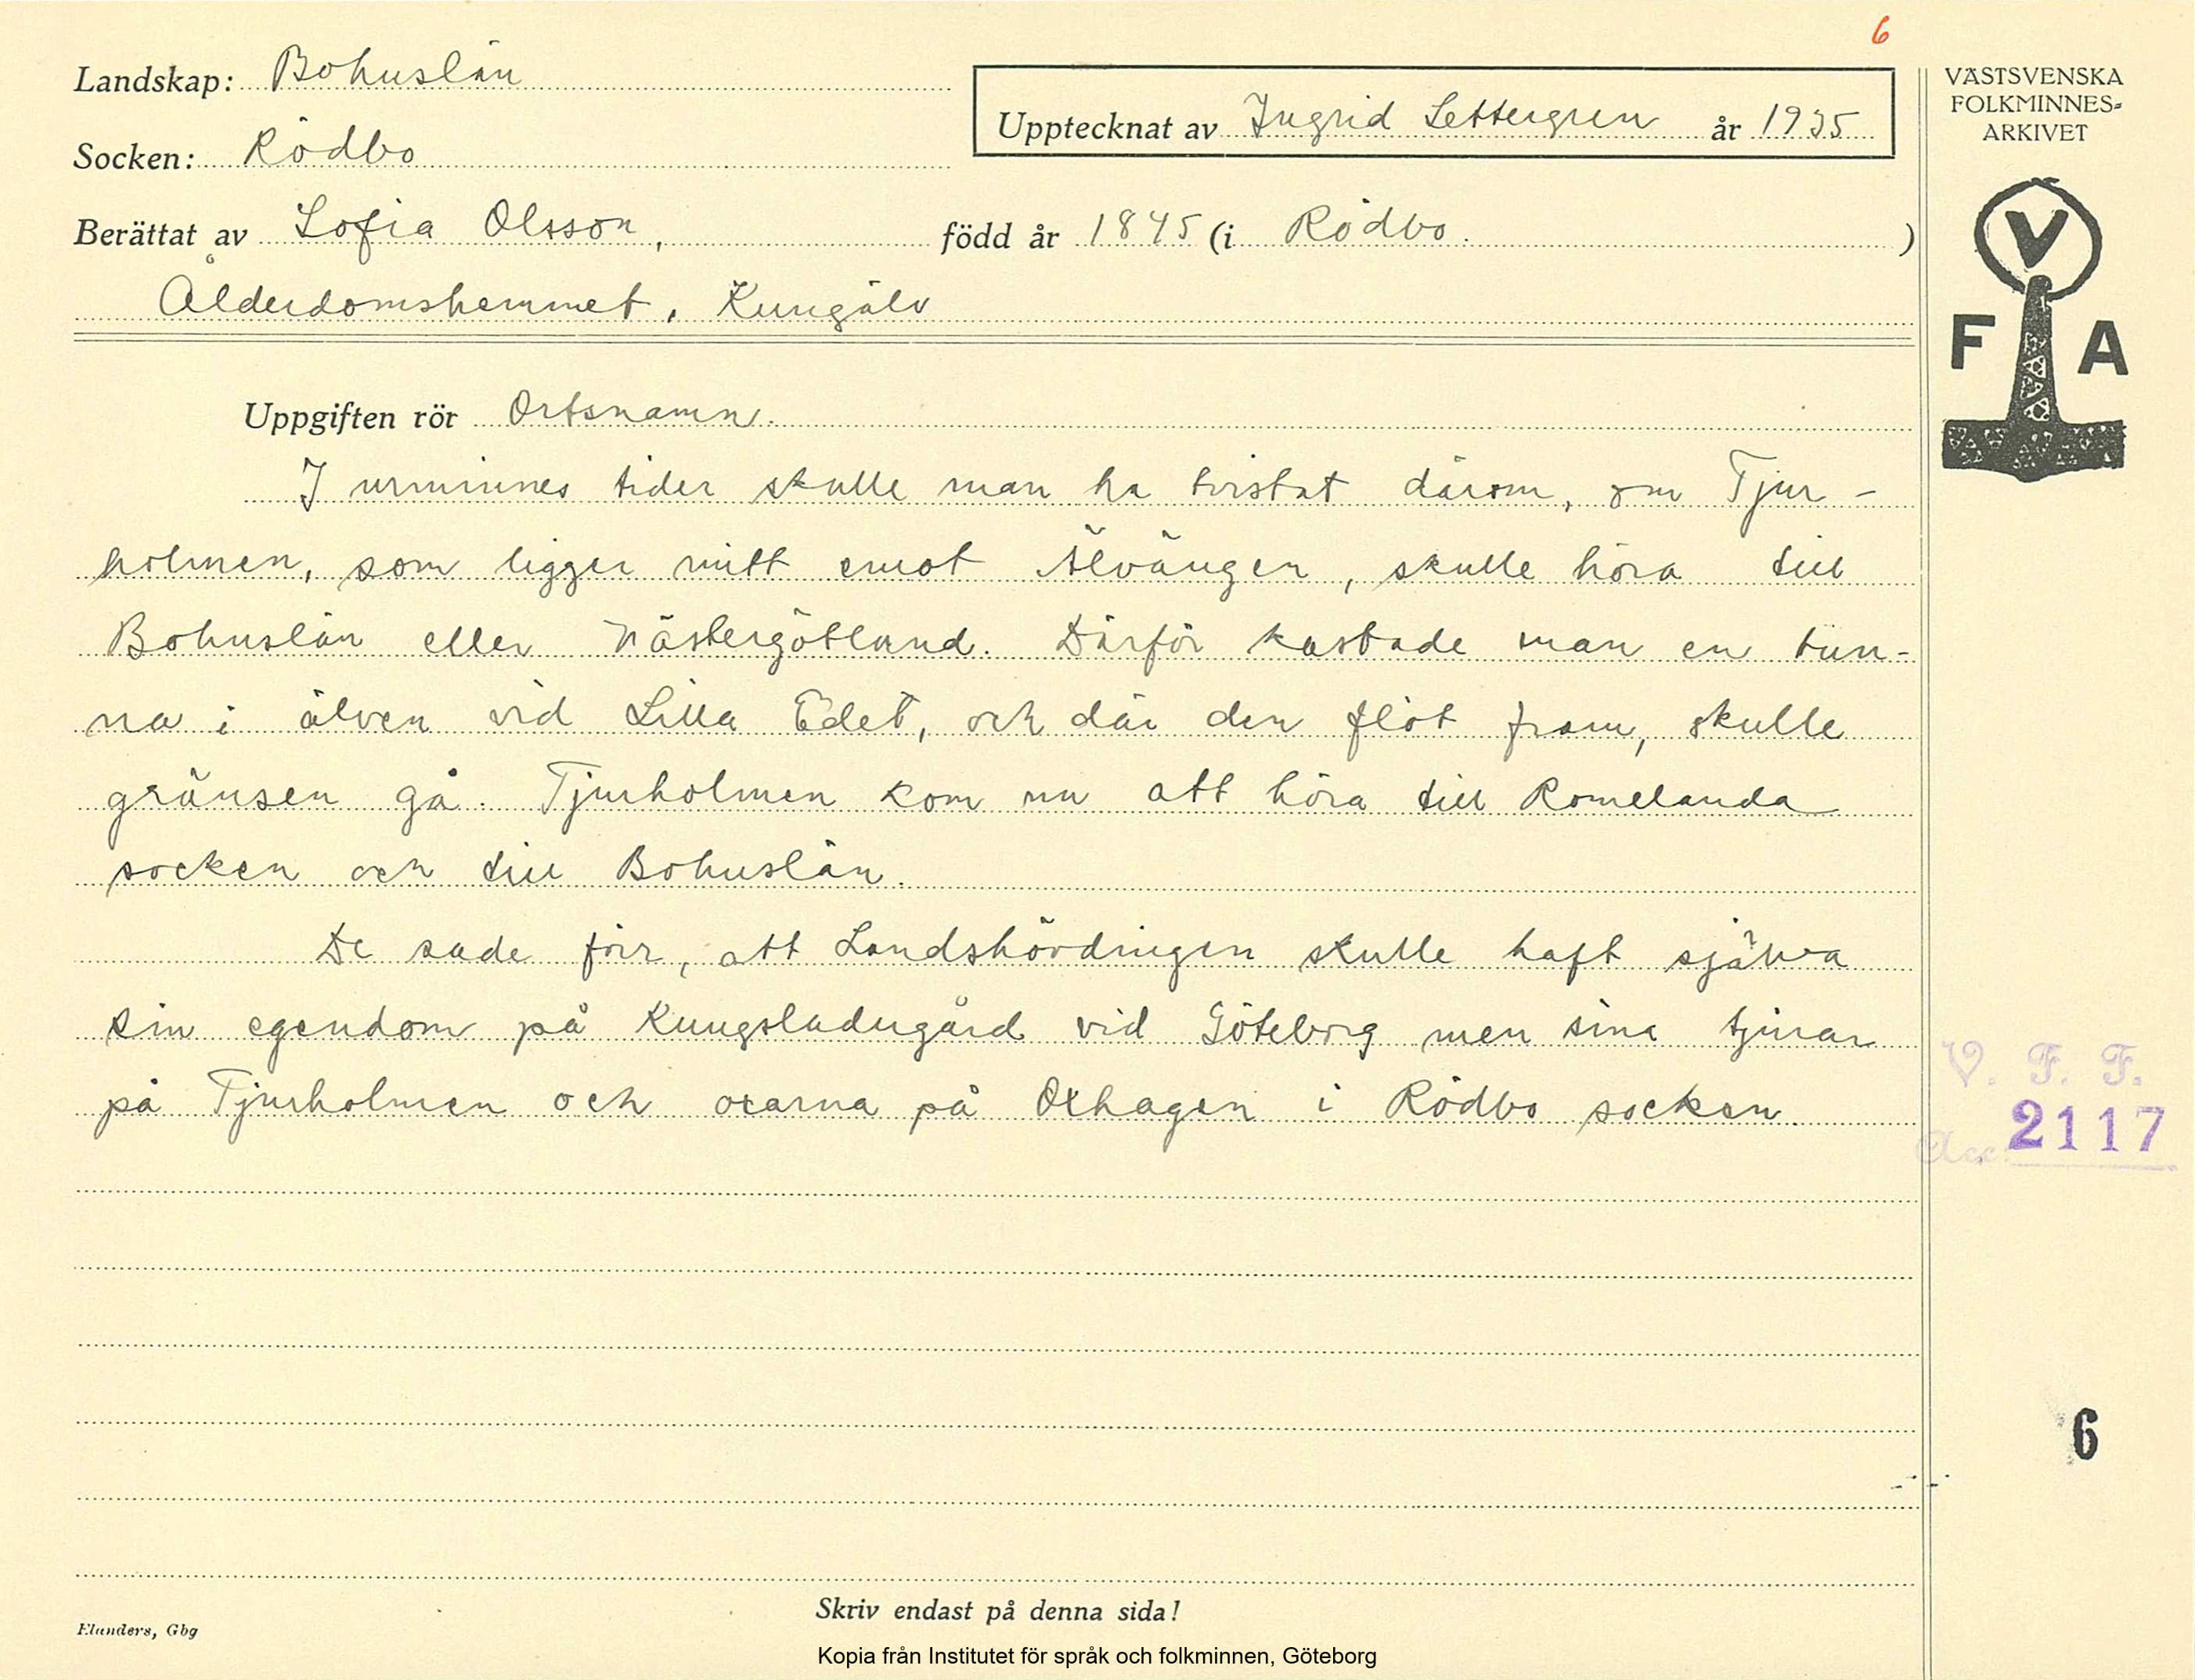 6
Landskap: Bohuslän
Socken: Rödbo
Upptecknat av Ingrid Settergren år 1935
Berättat av Sofia Olsson, född år 1845 (i Rödbo. )
Ålderdomshemmet, Kungälv
VÄSTSVENSKA
FOLKMINNES-
ARKIVET
V
F A
Uppgiften rör Ortsnamn.
I urminnes tider skulle man ha tvistat därom, om Tjur-
holmen, som ligger mitt emot Älvängen, skulle höra till
Bohuslän eller Västergötland. Därför kastade man en tun-
na i älven vid Lilla Edet, och där den flöt fram, skulle
gränsen gå. Tjurholmen kom nu att höra till Romelanda
socken och till Bohuslän.
De sade förr, att Landshövdingen skulle haft själva
sin egendom på Kungsladugård vid Göteborg men sina tjurar
på Tjurholmen och oxarna på Oxhagen i Rödbo socken.
V. F. F.
Acc. 2117
6
Skriv endast på denna sida!
Elanders, Gbg
Kopia från Institutet för språk och folkminnen, Göteborg